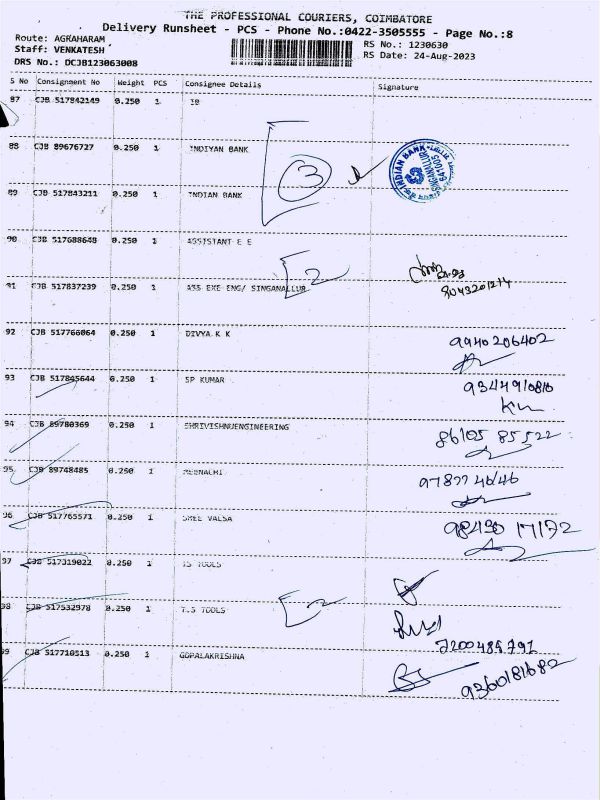 THE PROFESSIONAL COURIERS, COIMBATORE
Delivery Runsheet - PCS - Phone No.:0422-3505555 - Page No.:8
Route: AGRAHARAM
Staff: VENKATESH
DRS No.: DCJB123063008
RS No.: 1230630
RS Date: 24-Aug-2023
S No Consignment No Weight PCS Consignee Details Signature
87 CJB 517842149 0.250 1 IB
88 CJB 89676727 0.250 1 INDIYAN BANK
3
INDIAN BANK
641005
89 CJB 517843211 0.250 1 INDIAN BANK
90 CJB 517688648 0.250 1 ASSISTANT E E
2
91 CJB 517837239 0.250 1 ASS EXE ENG/ SINGANALLUR
8043201214
92 CJB 517766064 0.250 1 DIVYA K K
9940206402
93 CJB 517845644 0.250 1 SP KUMAR
9344910810
94 CJB 89780369 0.250 1 SHRIVISHNUENGINEERING
86105 85522
95 CJB 89748485 0.250 1
96 CJB 517765571 0.250 1 SREE VALSA
98430 17172
97 CJB 517319022 0.250 1 TS TOOLS
98 CJB 517532978 0.250 1 T.S TOOLS
2
7200485791
99 CJB 517710513 0.250 1 GOPALAKRISHNA
9360181682